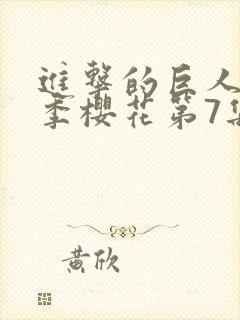 進擊的巨人
季櫻花第7集
黃欣